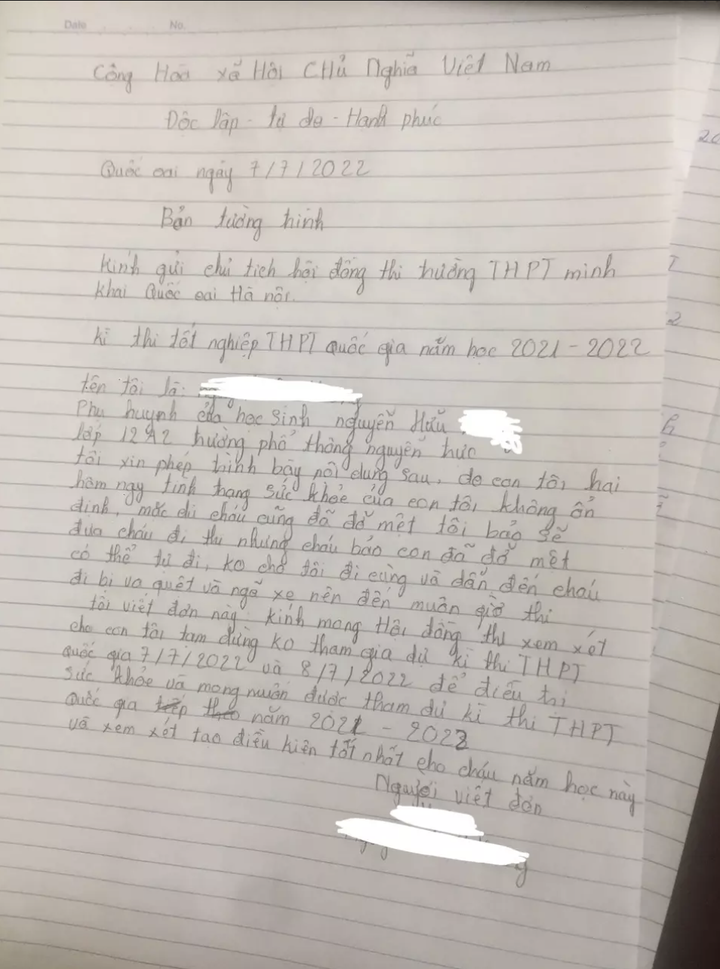 Date No.
Công Hoà xã Hôi CHủ Nghĩa Việt Nam
Dộc lập - tự do - Hanh phúc
Quốc oai ngày 7/7/2022
Bản tường trình
Kinh gửi chủ tich hội đồng thi trường THPT minh
khai Quốc oai Hà nội.
kì thi tốt nghiệp THPT quốc gia năm học 2021 - 2022
tên tôi là:
Phụ huynh của học sinh nguyễn Hữu
lớp 12A2 trường phổ thông nguyễn trực
tôi xin phép trình bày nôi dung sau, do con tôi hai
hôm nay tình trạng sức khỏe của con tôi không ổn
định, mặc dù cháu cũng đã đỡ mệt tôi bảo sẽ
đưa cháu đi thi nhưng cháu bảo con đã đỡ mệt
có thể tự đi, ko cho tôi đi cùng và dẫn đến cháu
đi bị va quệt và ngã xe nên đến muộn giờ thi
tôi viết đơn này kính mong Hội đồng thi xem xét
cho con tôi tạm dừng ko tham gia dự kì thi THPT
quốc gia 7/7/2022 và 8/7/2022 để điều trị
sức khỏe và mong muốn được tham dự kì thi THPT
quốc gia năm 2021 - 2022
và xem xét tạo điều kiện tốt nhất cho cháu năm học này
Người viết đơn